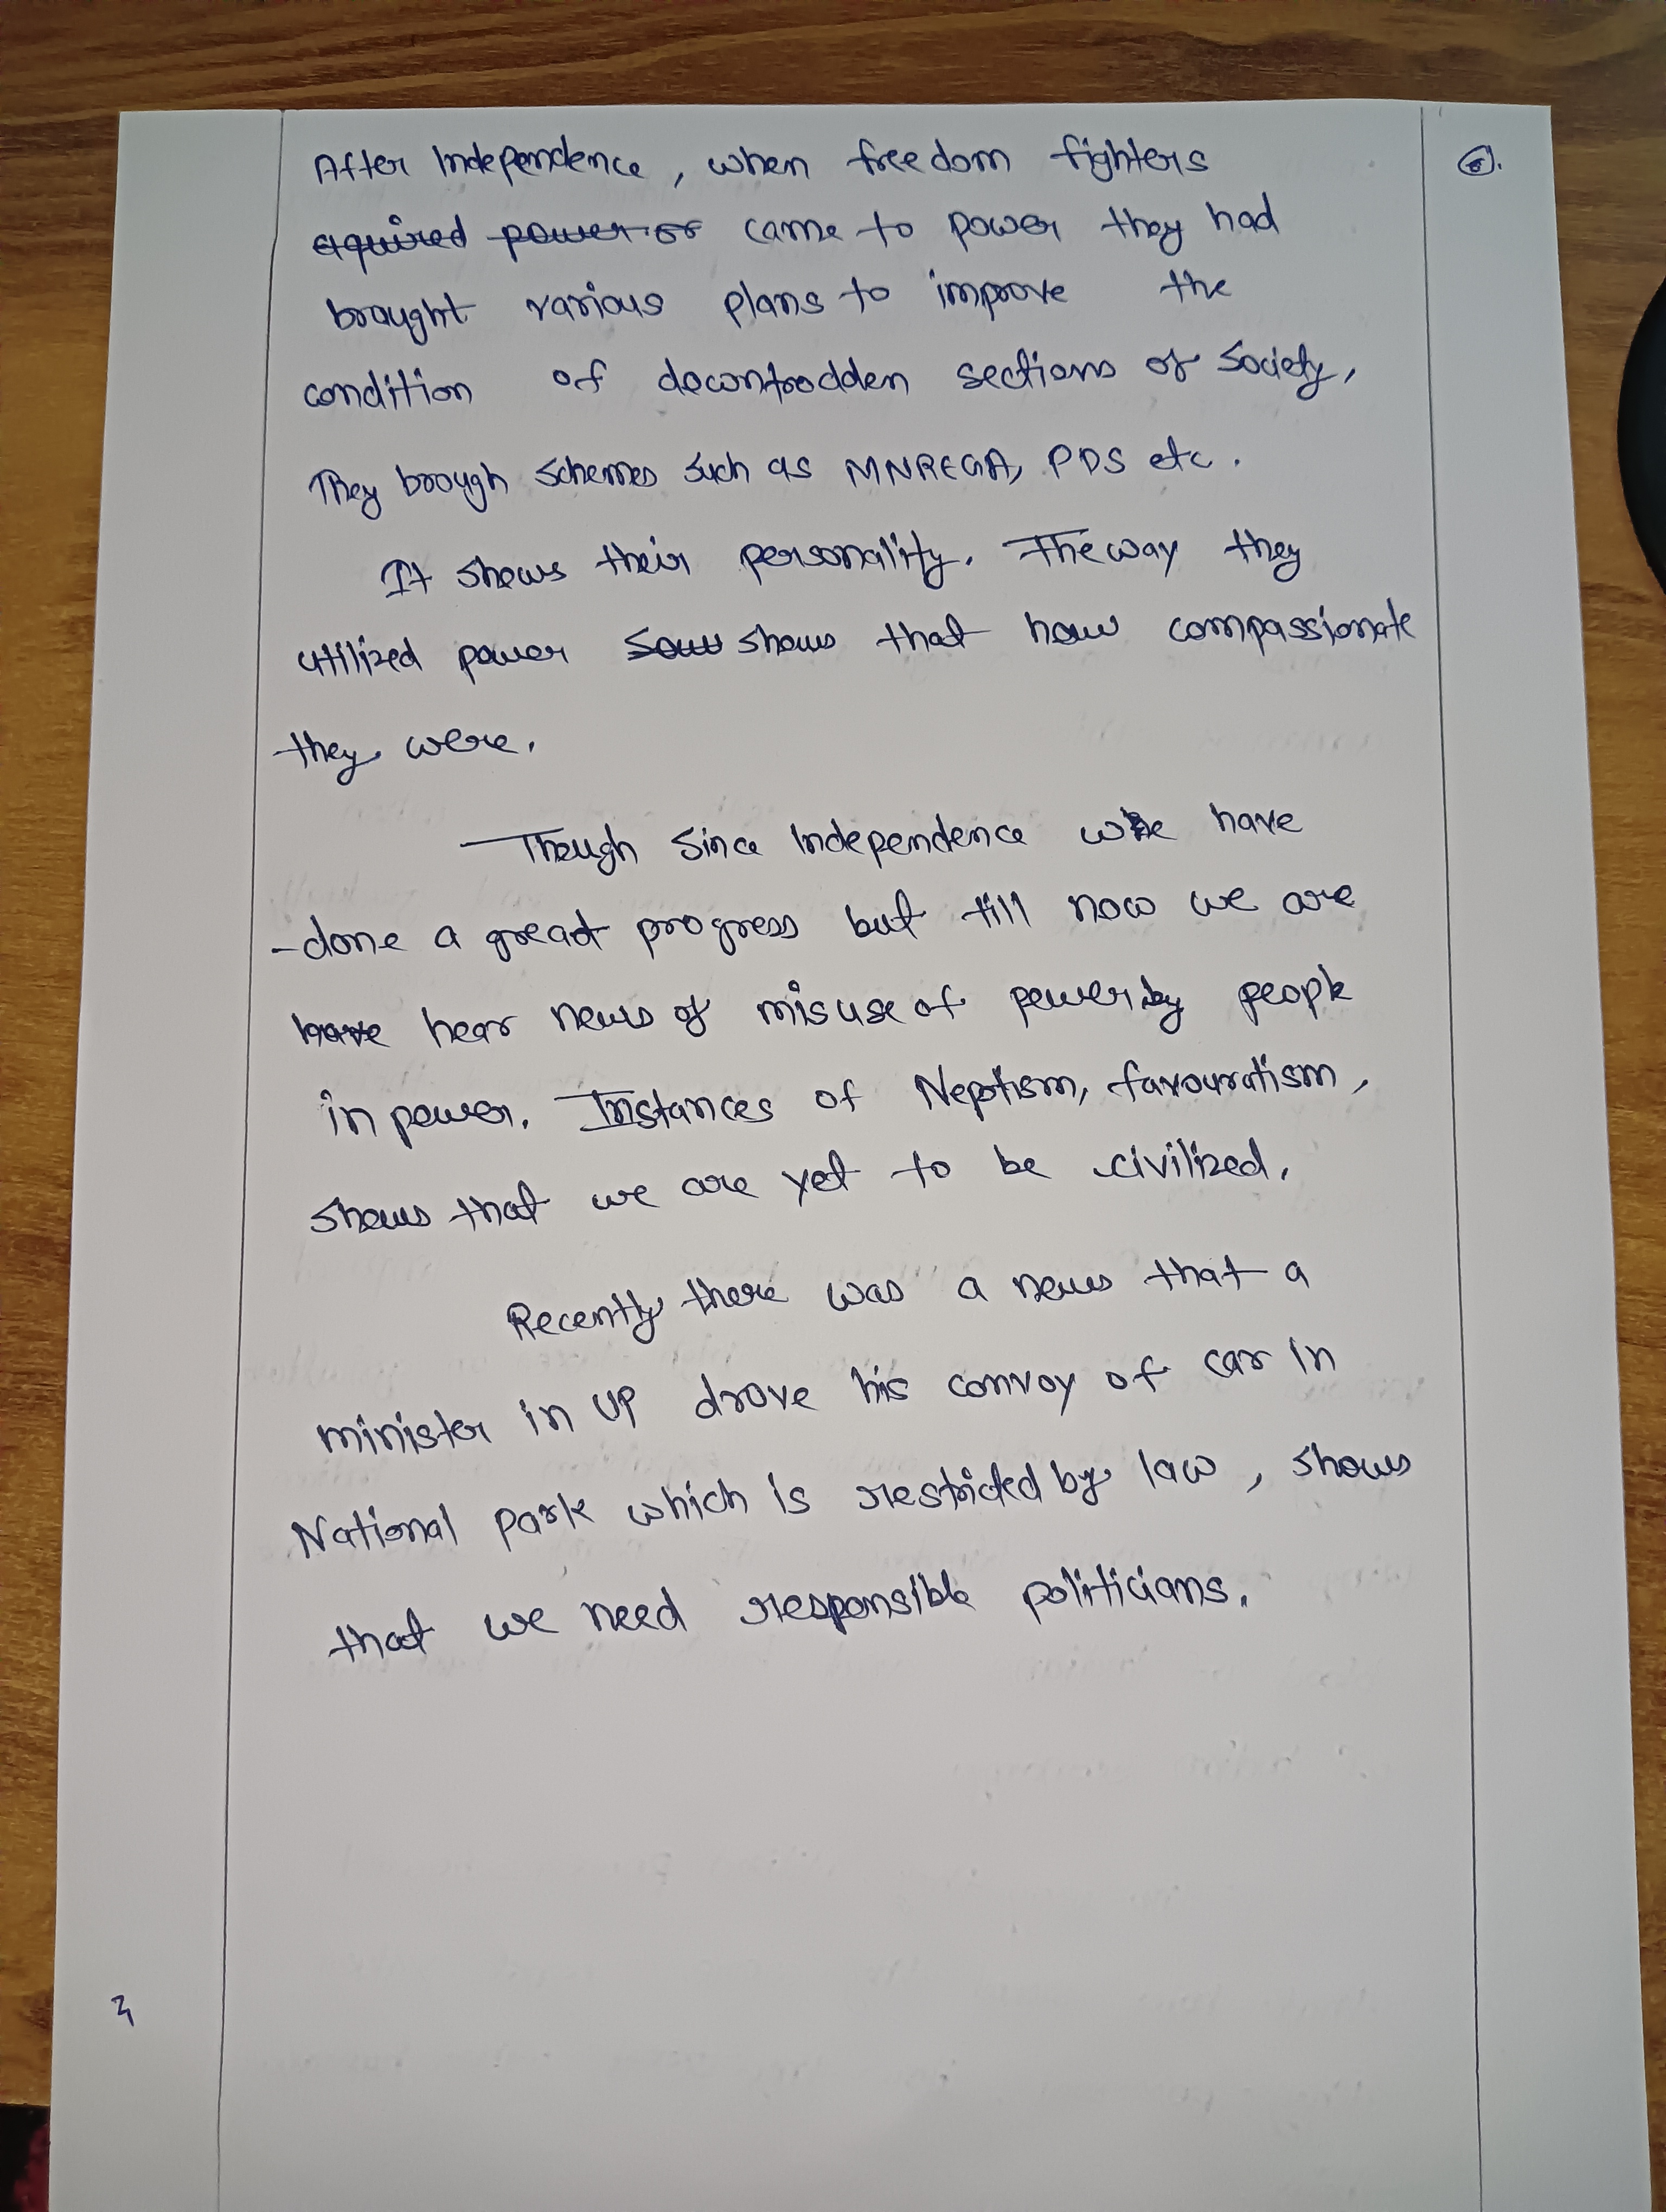 After Independence, when freedom fighters
6.
aquired power or came to power they had
brought various plans to improve the
condition of downtrodden sections of society,
They brough schemes such as MNREGA, PDS etc.
It shows their personality. The way they
utilized power sow shows that how compassionate
they were.
Though since Independence we have
-done a great progress but till now we are
have hear news of misuse of power by people
in power. Instances of Neptism, favouratism,
shows that we are yet to be civilized.
Recently there was a news that a
minister in UP drove his convoy of car in
National park which is restricted by law, shows
that we need responsible politicians.